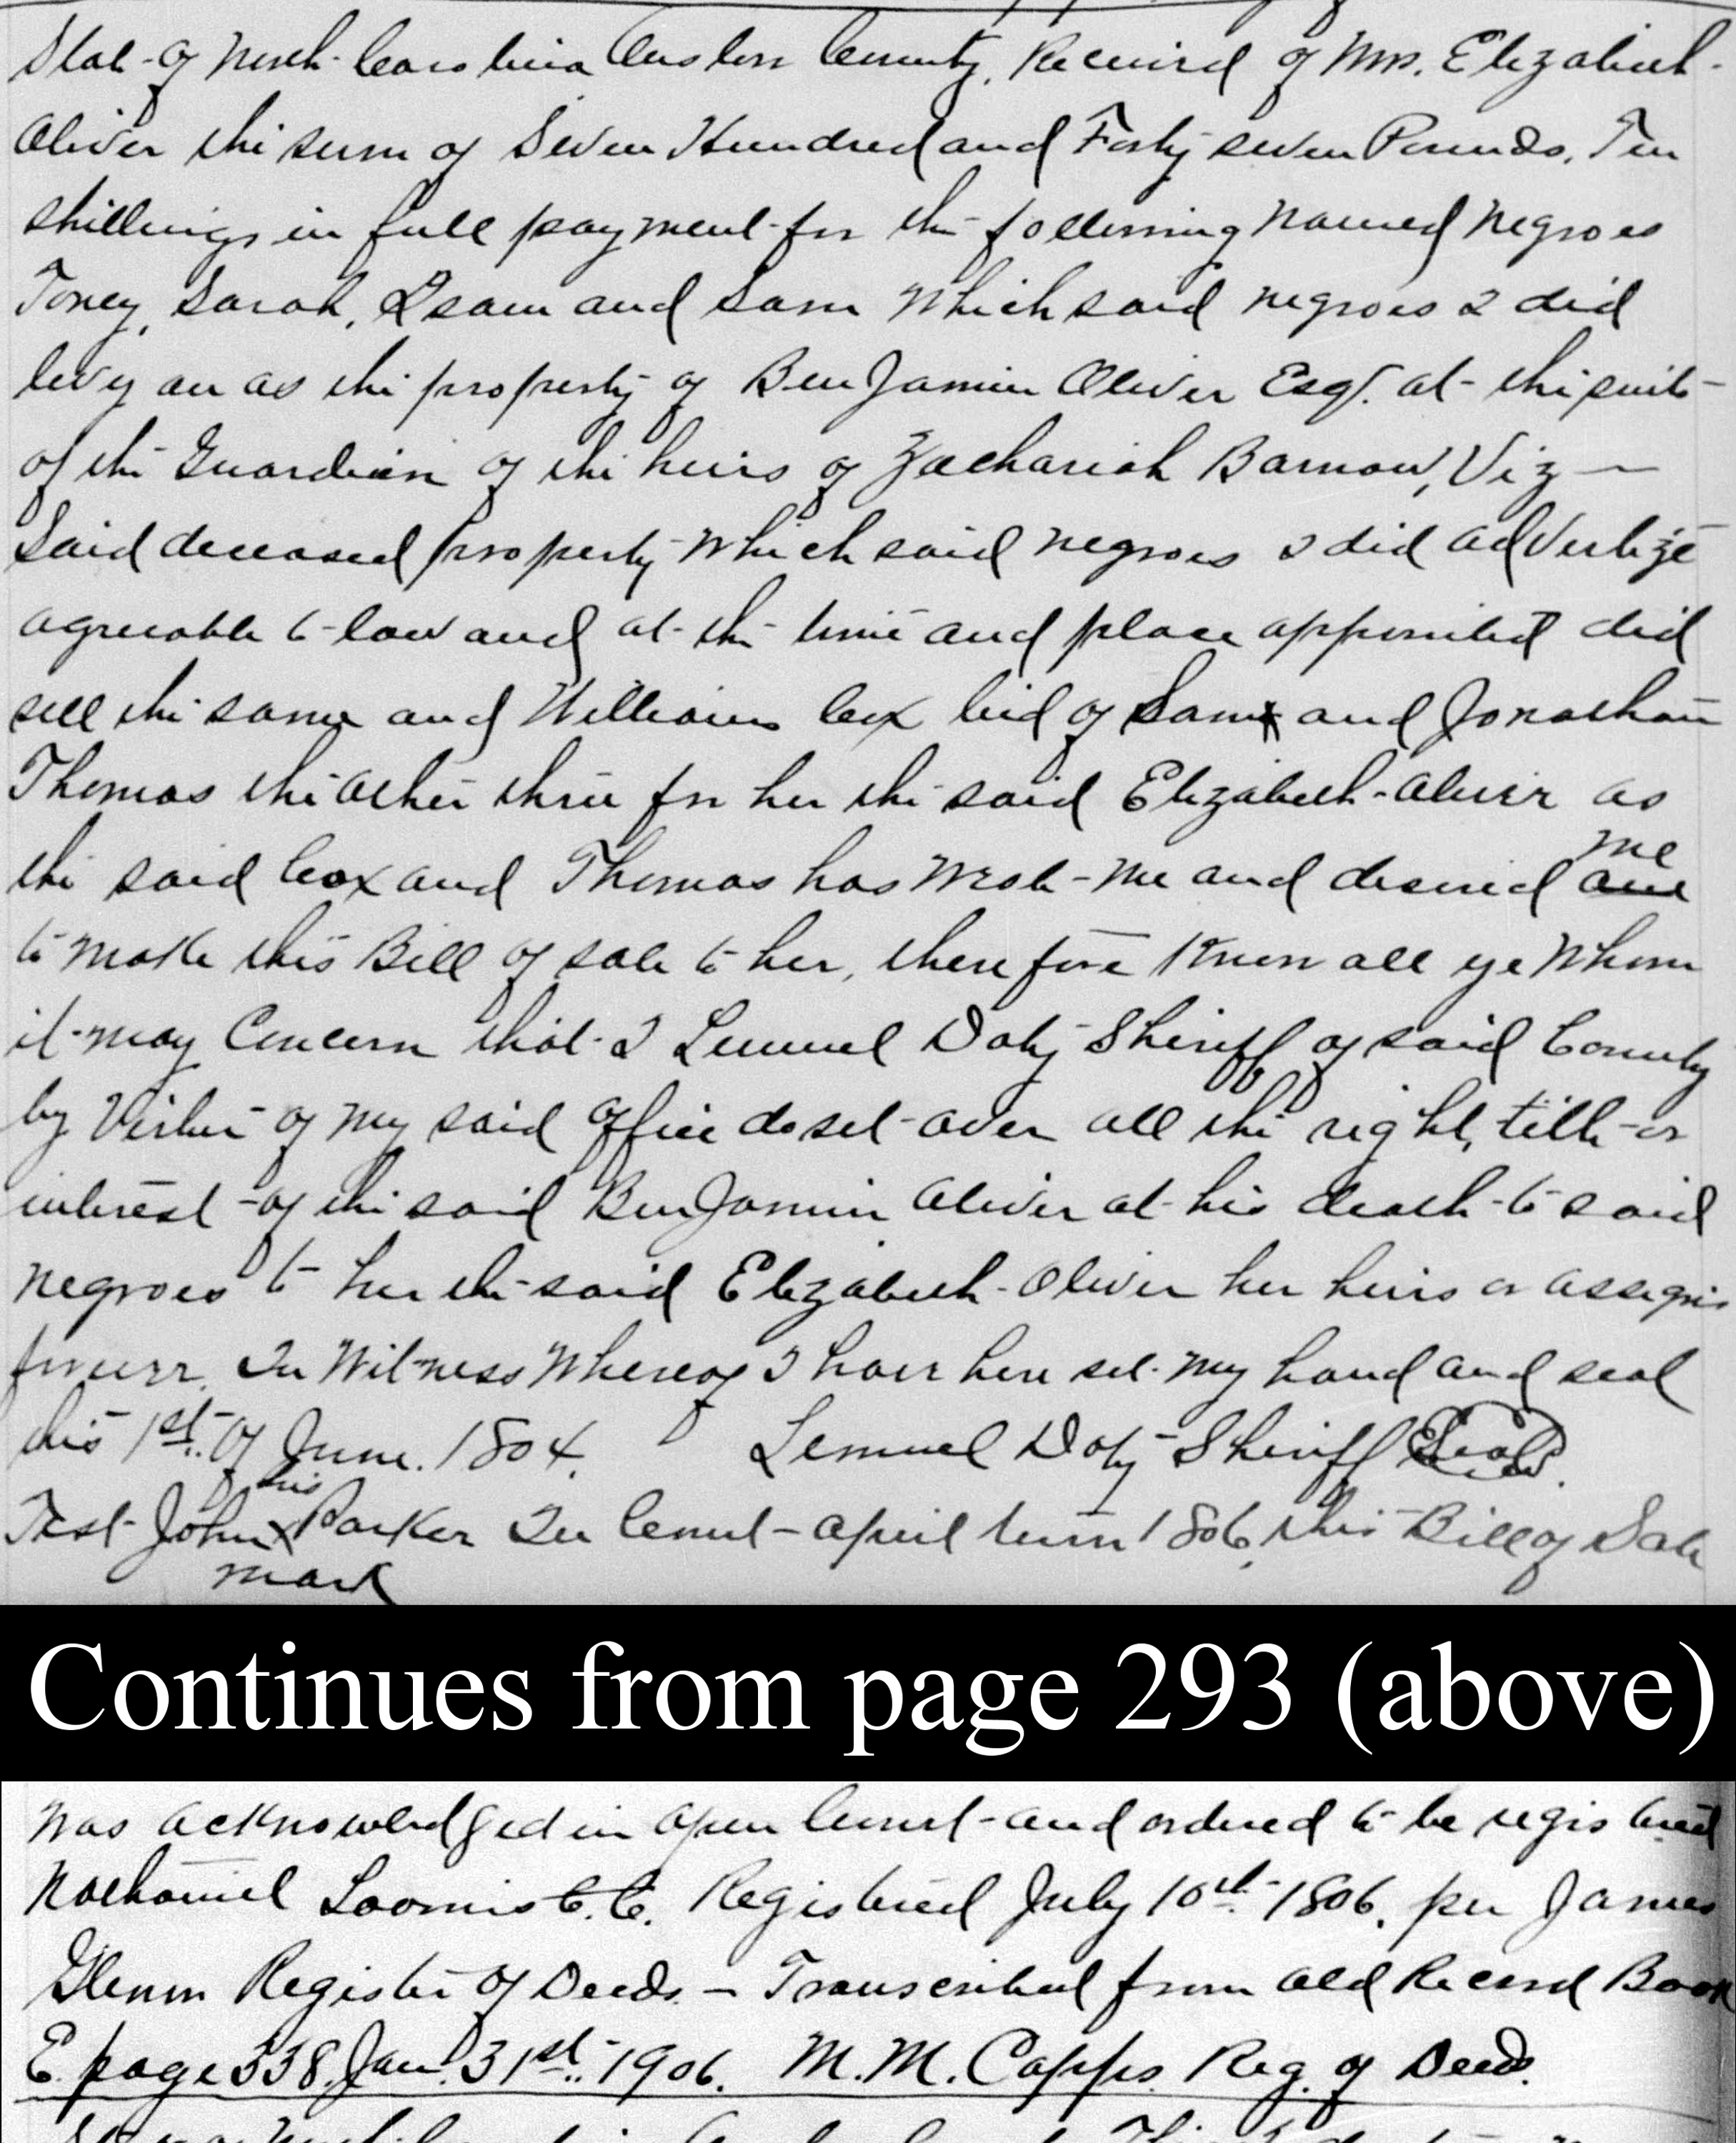 State of North Carolina Onslow County, Received of Mrs. Elizabeth
Oliver the sum of Seven Hundred and Forty seven Pounds, Ten
shillings in full payment for the following named negroes
Toney, Sarah, Isam and Sam which said negroes I did
levy on as the property of BenJamin Oliver Esqr. at the suit
of the Guardian of the heirs of Zachariah Barnow, Viz —
Said deceased property which said negroes I did advertize
agreeable to law and at the time and place appointed did
sell the same and William Cox bid of Sam and Jonathan
Thomas the other three for her the said Elizabeth Oliver as
me
the said Cox and Thomas has wrote me and desired
to make this Bill of sale to her, therefore Know all ye whom
it may Concern that I Lemuel Doty Sheriff of said County
by Virtue of my said office do set over all the right, title or
interest of the said BenJamin Oliver at his death to said
negroes to her the said Elizabeth Oliver her heirs or assigns
forever. In Witness Whereof I have here set my hand and seal
this 1st. of June. 1804. Lemuel Doty Sheriff Seal.
his
Test John X Parker In Court April term 1806, this Bill of Sale
mark
Continues from page 293 (above)
was acknowledged in open Court and ordered to be registered
Nathaniel Loomis C.C. Registered July 10th 1806. per James
Glenn Register of Deeds. — Transcribed from old Record Book
E page 338, Jan. 31st. 1906. M. M. Capps. Reg. of Deeds.